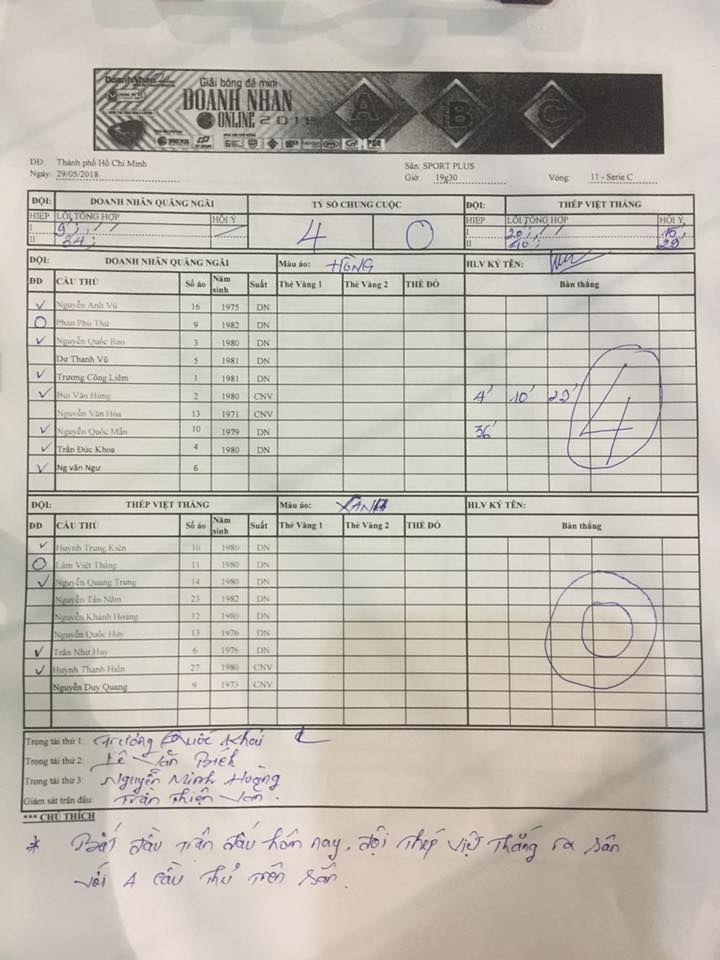 DoanhNhan
Giải bóng đá mini
DOANH NHAN
ONLINE 2018
A B C
ĐĐ: Thành phố Hồ Chí Minh Sân: SPORT PLUS
Ngày: 29/05/2018 Giờ: 19g30 Vòng: 11 - Serie C
ĐỘI: DOANH NHÂN QUẢNG NGÃI TỶ SỐ CHUNG CUỘC ĐỘI: THÉP VIỆT THẮNG
HIỆP LỖI TỔNG HỢP HỘI Ý 4 0 HIỆP LỖI TỔNG HỢP HỘI Ý
I 9' I 20' 15'
II 34' II 40' 29'
ĐỘI: DOANH NHÂN QUẢNG NGÃI Màu áo: HỒNG HLV KÝ TÊN:
ĐD CẦU THỦ Số áo Năm sinh Suất Thẻ Vàng 1 Thẻ Vàng 2 THẺ ĐỎ Bàn thắng
Nguyễn Anh Vũ 16 1975 DN
Phan Phú Thứ 9 1982 DN
Nguyễn Quốc Bảo 3 1980 DN
Dư Thanh Vũ 5 1981 DN
Trương Công Liêm 1 1981 DN
Bùi Văn Hùng 2 1980 CNV 4' 10' 22' 4
Nguyễn Văn Hòa 13 1971 CNV
Nguyễn Quốc Mẫn 10 1979 DN 36'
Trần Đức Khoa 4 1980 DN
Ng văn Ngư 6
ĐỘI: THÉP VIỆT THẮNG Màu áo: XANH HLV KÝ TÊN:
ĐD CẦU THỦ Số áo Năm sinh Suất Thẻ Vàng 1 Thẻ Vàng 2 THẺ ĐỎ Bàn thắng
Huỳnh Trung Kiên 10 1980 DN
Lâm Việt Thắng 11 1980 DN
Nguyễn Quang Trung 14 1980 DN
Nguyễn Tấn Năm 23 1982 DN
Nguyễn Khánh Hoàng 12 1980 DN 0
Nguyễn Quốc Huy 13 1976 DN
Trần Như Huy 6 1976 DN
Huỳnh Thanh Hiền 27 1980 CNV
Nguyễn Duy Quang 9 1973 CNV
Trọng tài thứ 1: Trương Quốc Khải
Trọng tài thứ 2: Lê Văn
Trọng tài thứ 3: Nguyễn Minh Hoàng
Giám sát trận đấu: Trần Thiện
*** CHÚ THÍCH
* Bắt đầu trận đấu hôm nay, đội thép việt thắng ra sân
với 4 cầu thủ trên sân.